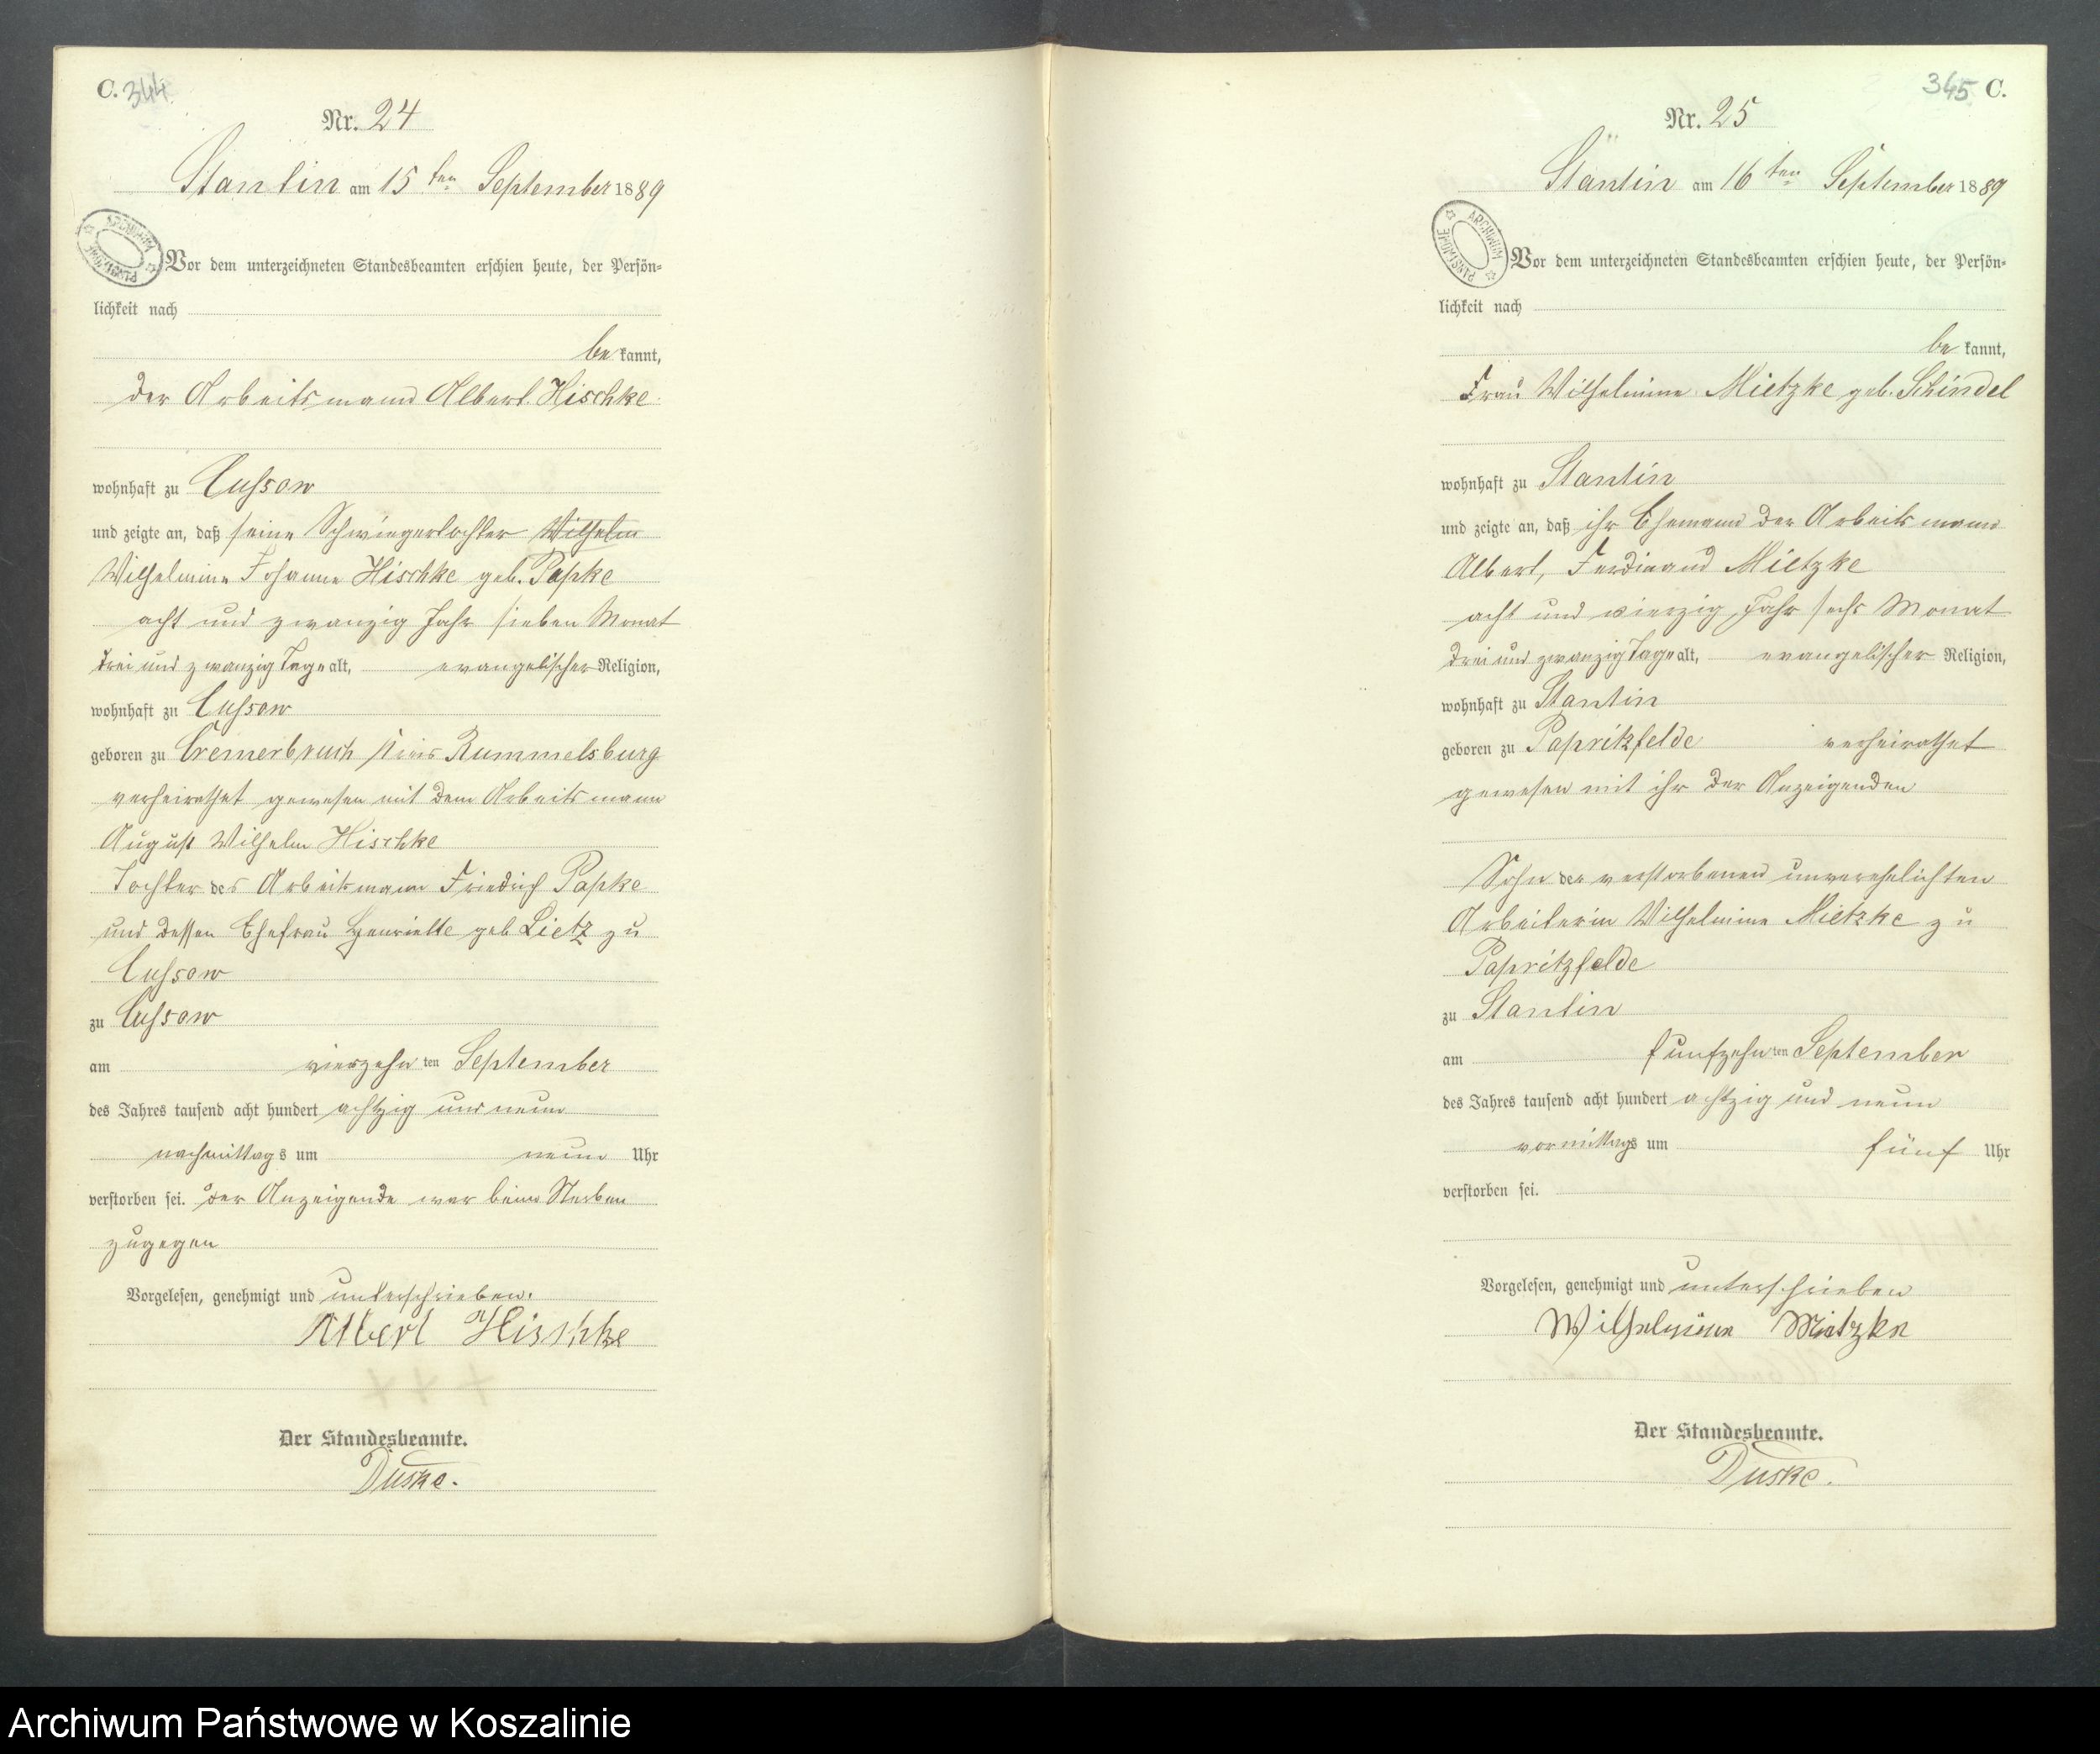 C. 344
Nr. 24
Stantin am 15ten September 1889
ARCHIWUM PAŃSTWOWE
Vor dem unterzeichneten Standesbeamten erschien heute, der Persön=
lichkeit nach
be kannt,
der Arbeitsmann Albert Hischke
wohnhaft zu Cussow
und zeigte an, daß seine Schwiegertochter Wilhelm
Wilhelmine Johanne Hischke geb. Papke
acht und zwanzig Jahr sieben Monat
drei und zwanzig Tage alt, evangelischer Religion,
wohnhaft zu Cussow
geboren zu Cremerbruch Kreis Rummelsburg
verheirathet gewesen mit dem Arbeitsmann
August Wilhelm Hischke
Tochter des Arbeitsmann Friedrich Papke
und dessen Ehefrau Henriette geb Lietz zu
Cussow
zu Cussow
am vierzehn ten September
des Jahres tausend acht hundert achtzig und neun
nachmittags um neun Uhr
verstorben sei. Der Anzeigende war beim Sterben
zugegen
Vorgelesen, genehmigt und unterschrieben.
Albert Hischke
Der Standesbeamte.
Duske.
345 C.
Nr. 25
Stantin am 16ten September 1889
ARCHIWUM PAŃSTWOWE
Vor dem unterzeichneten Standesbeamten erschien heute, der Persön=
lichkeit nach
be kannt,
Frau Wilhelmine Mietzke geb. Schindel
wohnhaft zu Stantin
und zeigte an, daß ihr Ehemann der Arbeitsmann
Albert, Ferdinand Mietzke
acht und vierzig Jahr sechs Monat
drei und zwanzig Tage alt, evangelischer Religion,
wohnhaft zu Stantin
geboren zu Papritzfelde verheirathet
gewesen mit ihr der Anzeigenden
Sohn der verstorbenen unverehelichten
Arbeiterin Wilhelmine Mietzke zu
Papritzfelde
zu Stantin
am fünfzehn ten September
des Jahres tausend acht hundert achtzig und neun
vormittags um fünf Uhr
verstorben sei.
Vorgelesen, genehmigt und unterschrieben
Wilhelmine Mietzke
Der Standesbeamte.
Duske.
Archiwum Państwowe w Koszalinie